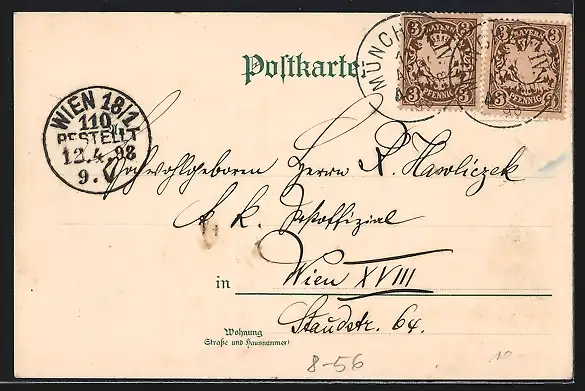 Postkarte.
MÜNCHEN XIV
3 BAYERN 3
3 PFENNIG 3
3 BAYERN 3
3 PFENNIG 3
WIEN 18/1
110
BESTELLT
12.4.98
9.V
Hochwohlgeboren Herrn A. Havliczek
k. k. Postoffizial
in Wien XVIII
Staudstr. 64.
Wohnung
Straße und Hausnummer
8-56
10-